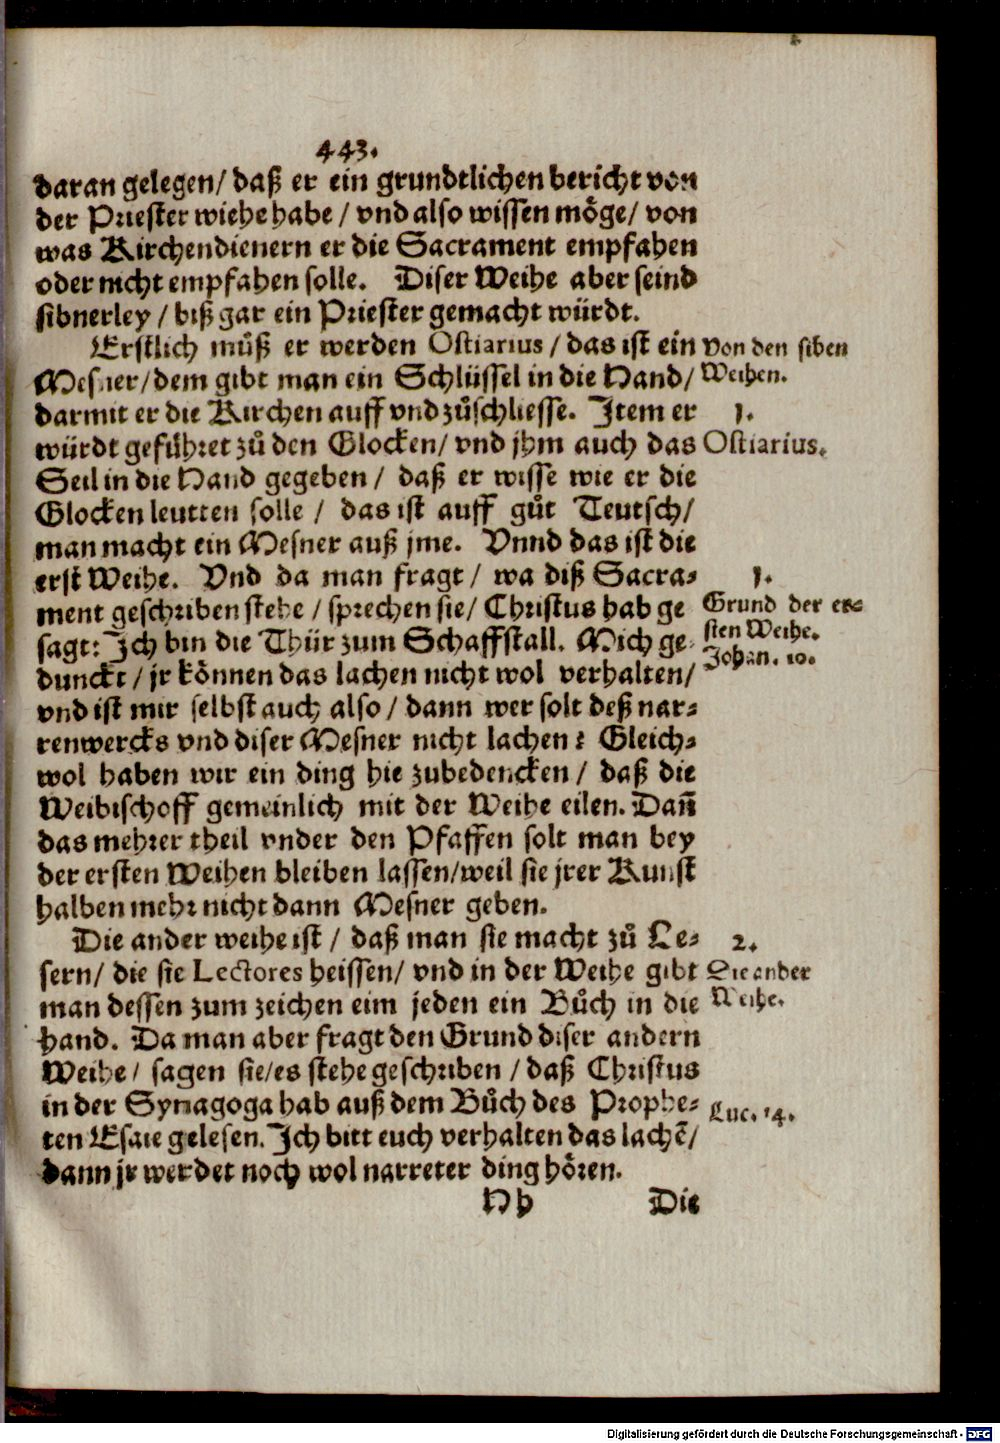 443.
daran gelegen/ daß er ein grundtlichen bericht von
der Priester wiehe habe / vnd also wissen möge/ von
was Kirchendienern er die Sacrament empfahen
oder nicht empfahen solle. Diser Weihe aber seind
sibnerley / biß gar ein Priester gemacht würdt.
Erstlich muͦß er werden Ostiarius / das ist ein
Von den siben
Mesner/ dem gibt man ein Schlüssel in die Hand/
Weihen.
darmit er die Kirchen auff vnd zuͦschliesse. Item er
1.
würdt gefuͤhret zuͦ den Glocken/ vnd jhm auch das
Ostiarius.
Seil in die Hand gegeben / daß er wisse wie er die
Glocken leutten solle / das ist auff guͦt Teutsch/
man macht ein Mesner auß jme. Vnnd das ist die
erst Weihe. Vnd da man fragt / wa diß Sacra-
1.
ment geschriben stehe / sprechen sie/ Christus hab ge
Grund der er-
sagt: Ich bin die Thür zum Schaffstall. Mich ge
sten Weihe.
Johan. 10.
dunckt / jr können das lachen nicht wol verhalten/
vnd ist mir selbst auch also / dann wer solt deß nar-
renwercks vnd diser Mesner nicht lachen? Gleich-
wol haben wir ein ding hie zubedencken / daß die
Weibischoff gemeinlich mit der Weihe eilen. Dañ
das mehrer theil vnder den Pfaffen solt man bey
der ersten Weihen bleiben lassen/ weil sie jrer Kunst
halben mehr nicht dann Mesner geben.
Die ander weihe ist / daß man sie macht zuͦ Le-
2.
sern/ die sie Lectores heissen/ vnd in der Weihe gibt
Die ander
man dessen zum zeichen eim jeden ein Buͦch in die
Weihe.
hand. Da man aber fragt den Grund diser andern
Weihe / sagen sie/ es stehe geschriben / daß Christus
in der Synagoga hab auß dem Buͦch des Prophe-
Luc. 4.
ten Esaie gelesen. Ich bitt euch verhalten das lachẽ/
dann jr werdet noch wol narreter ding hören.
Hh
Die
Digitalisierung gefördert durch die Deutsche Forschungsgemeinschaft - DFG